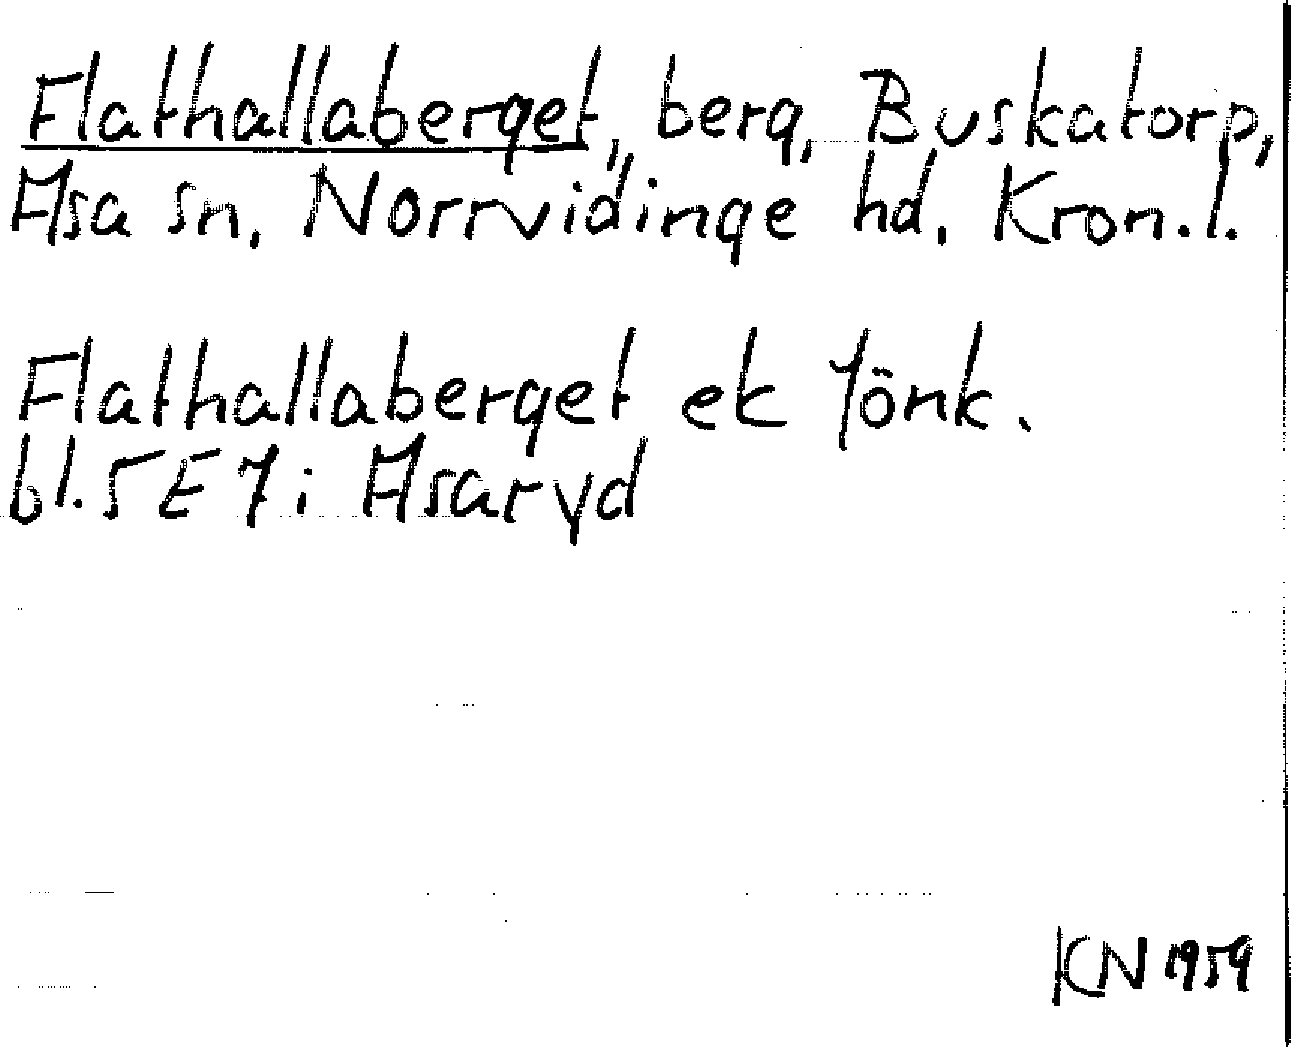 Flathallaberget, berg, Buskatorp,
Asa sn, Norrvidinge hd, Kron.l.
Flathallaberget ek Jönk.
bl. 5 E 7 i Asaryd
KN 1959